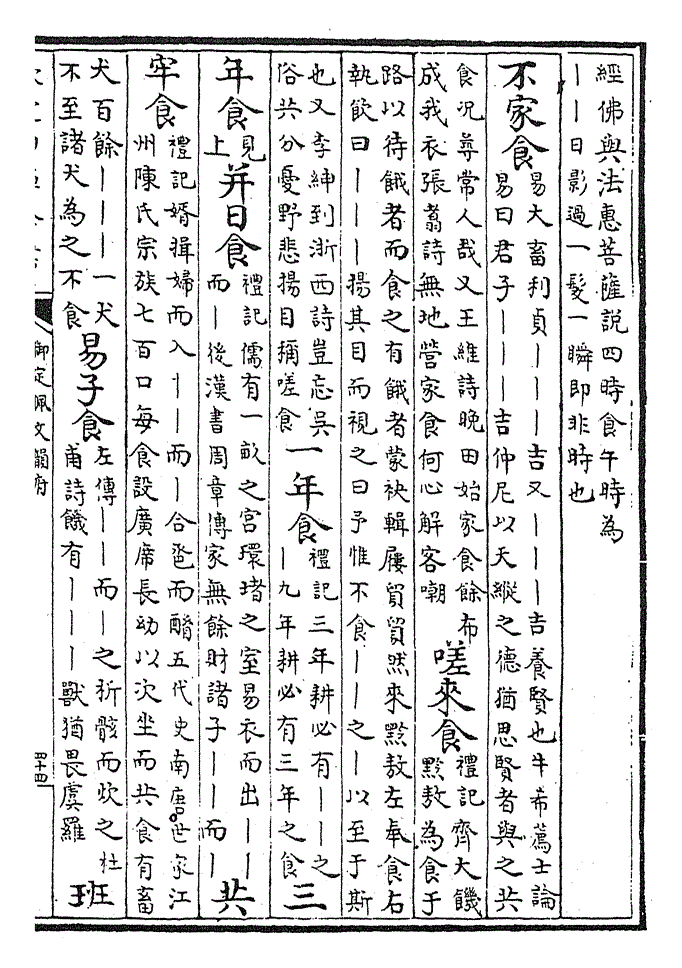 經佛與法惠菩薩說四時食午時為
｜｜日影過一髮一瞬即非時也
不家食
易大畜利貞｜｜｜吉又｜｜｜吉養賢也牛希薦士論
易曰君子｜｜｜吉仲尼以天縱之德猶思賢者與之共
食况尋常人哉又王維詩晚田始家食餘布
成我衣張蠢詩無地營家食何心解客嘲
嗟來食
禮記齊大饑
黔敖為食于
路以待餓者而食之有餓者蒙袂輯屨貿貿然來黔敖左奉食右
執飲曰｜｜｜揚其目而視之曰予惟不食｜｜之｜以至于斯
也又李紳到浙西詩豈忘吳
俗共分憂野悲揚目擳嗟食
一年食
禮記三年耕必有｜｜之
｜九年耕必有三年之食
三
年食
見
上
并日食
禮記儒有一畝之宮環堵之室易衣而出｜｜
而｜後漢書周章傳家無餘財諸子｜｜而｜
共
牢食
禮記婿揖婦而入｜｜而｜合巹而酳五代史南唐世家江
州陳氏宗族七百口每食設廣席長幼以次坐而共食有畜
犬百餘｜｜｜一犬
不至諸犬為之不食
易子食
左傳｜｜而｜之析骸而炊之杜
甫詩饑有｜｜｜獸猶畏虞羅
班
御定佩文韻府
四十四